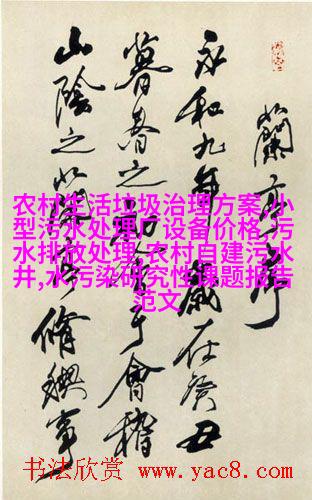 蘭亭序
永和九年歲在癸丑
暮春之初會于會稽
山陰之蘭亭脩禊事
农村生活垃圾治理方案,小
型污水处理厂设备价格,污
水排放处理,农村自建污水
井,水污染研究性课题报告
范文
书法欣赏 www.yac8.com